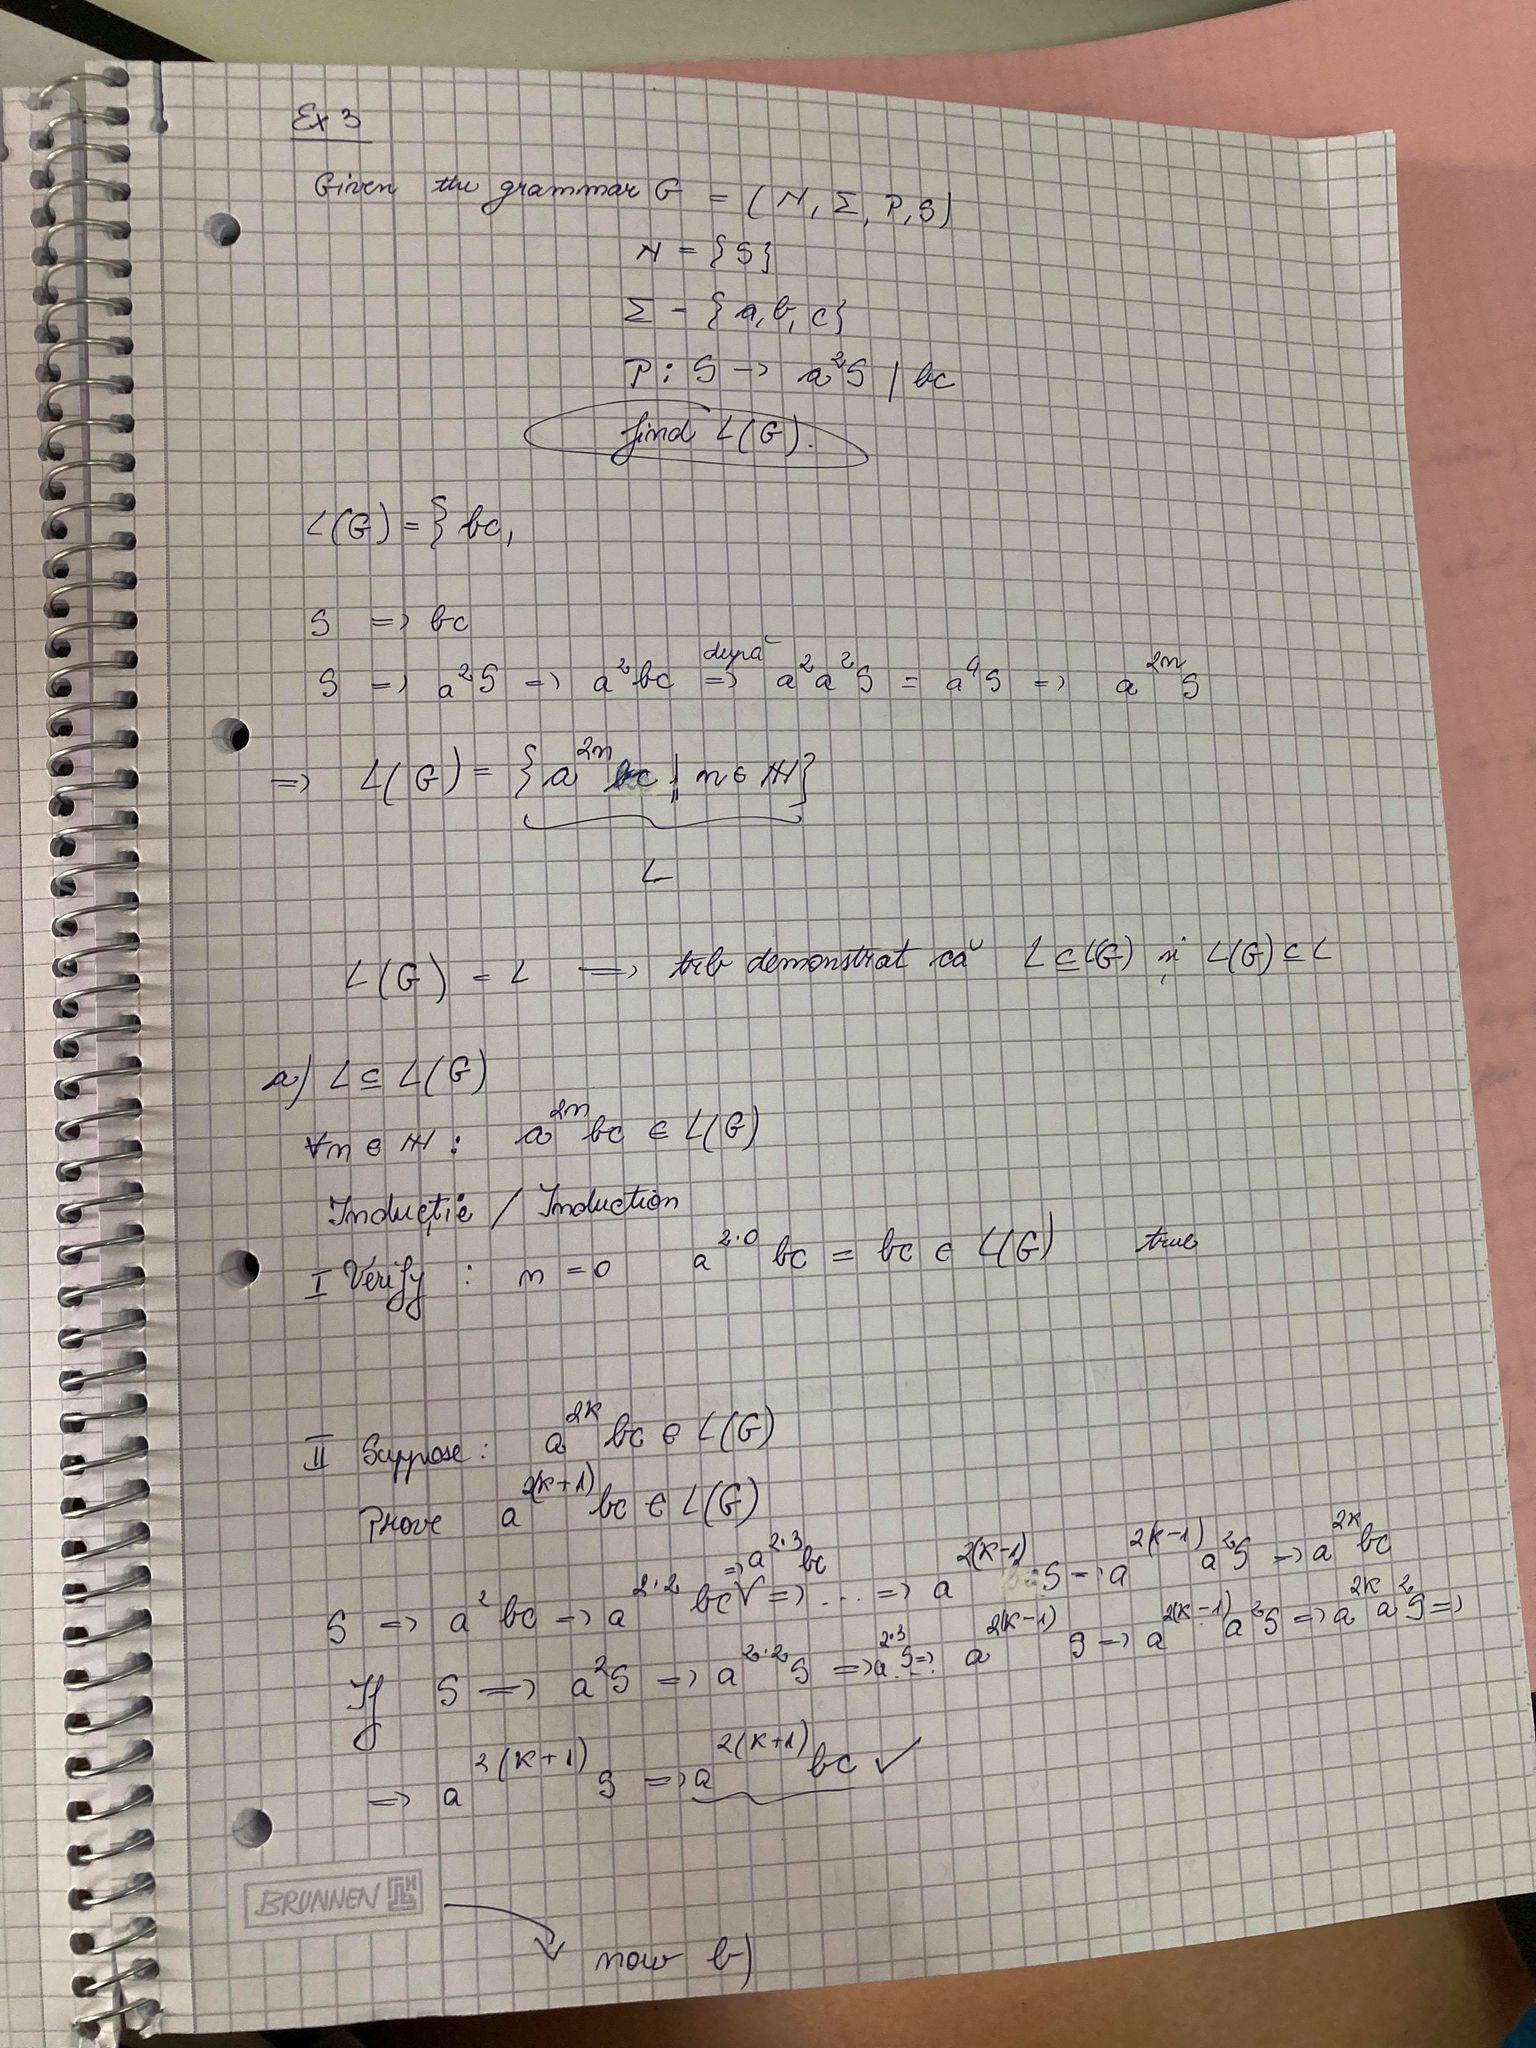 Ex 3
Given the grammar G = (N, Σ, P, S)
N = {S}
Σ = {a, b, c}
P: S -> a²S | bc
find L(G).
L(G) = { bc,
S => bc
S => a²S => a²bc =>(după) a²a²S = a⁴S => a²ⁿS
=> L(G) = {a²ⁿ bc | n ∈ ℕ}
L
L(G) = L => trb demonstrat că L ⊆ L(G) și L(G) ⊆ L
a) L ⊆ L(G)
∀n ∈ ℕ: a²ⁿ bc ∈ L(G)
Inducție / Induction
I Verify: n = 0 a^{2·0} bc = bc ∈ L(G) true
II Suppose: a^{2k} bc ∈ L(G)
Prove a^{2(k+1)} bc ∈ L(G)
S => a² bc => a^{2·2} bc => a^{2·3} bc => ... => a^{2(k-1)} S => a^{2(k-1)} a²S => a^{2k} bc
If S => a²S => a^{2·2} S => a^{2·3} S => ... a^{2(k-1)} S => a^{2(k-1)} a²S => a^{2k} a²S =>
=> a^{2(k+1)} S => a^{2(k+1)} bc ✓
BRUNNEN
now b)